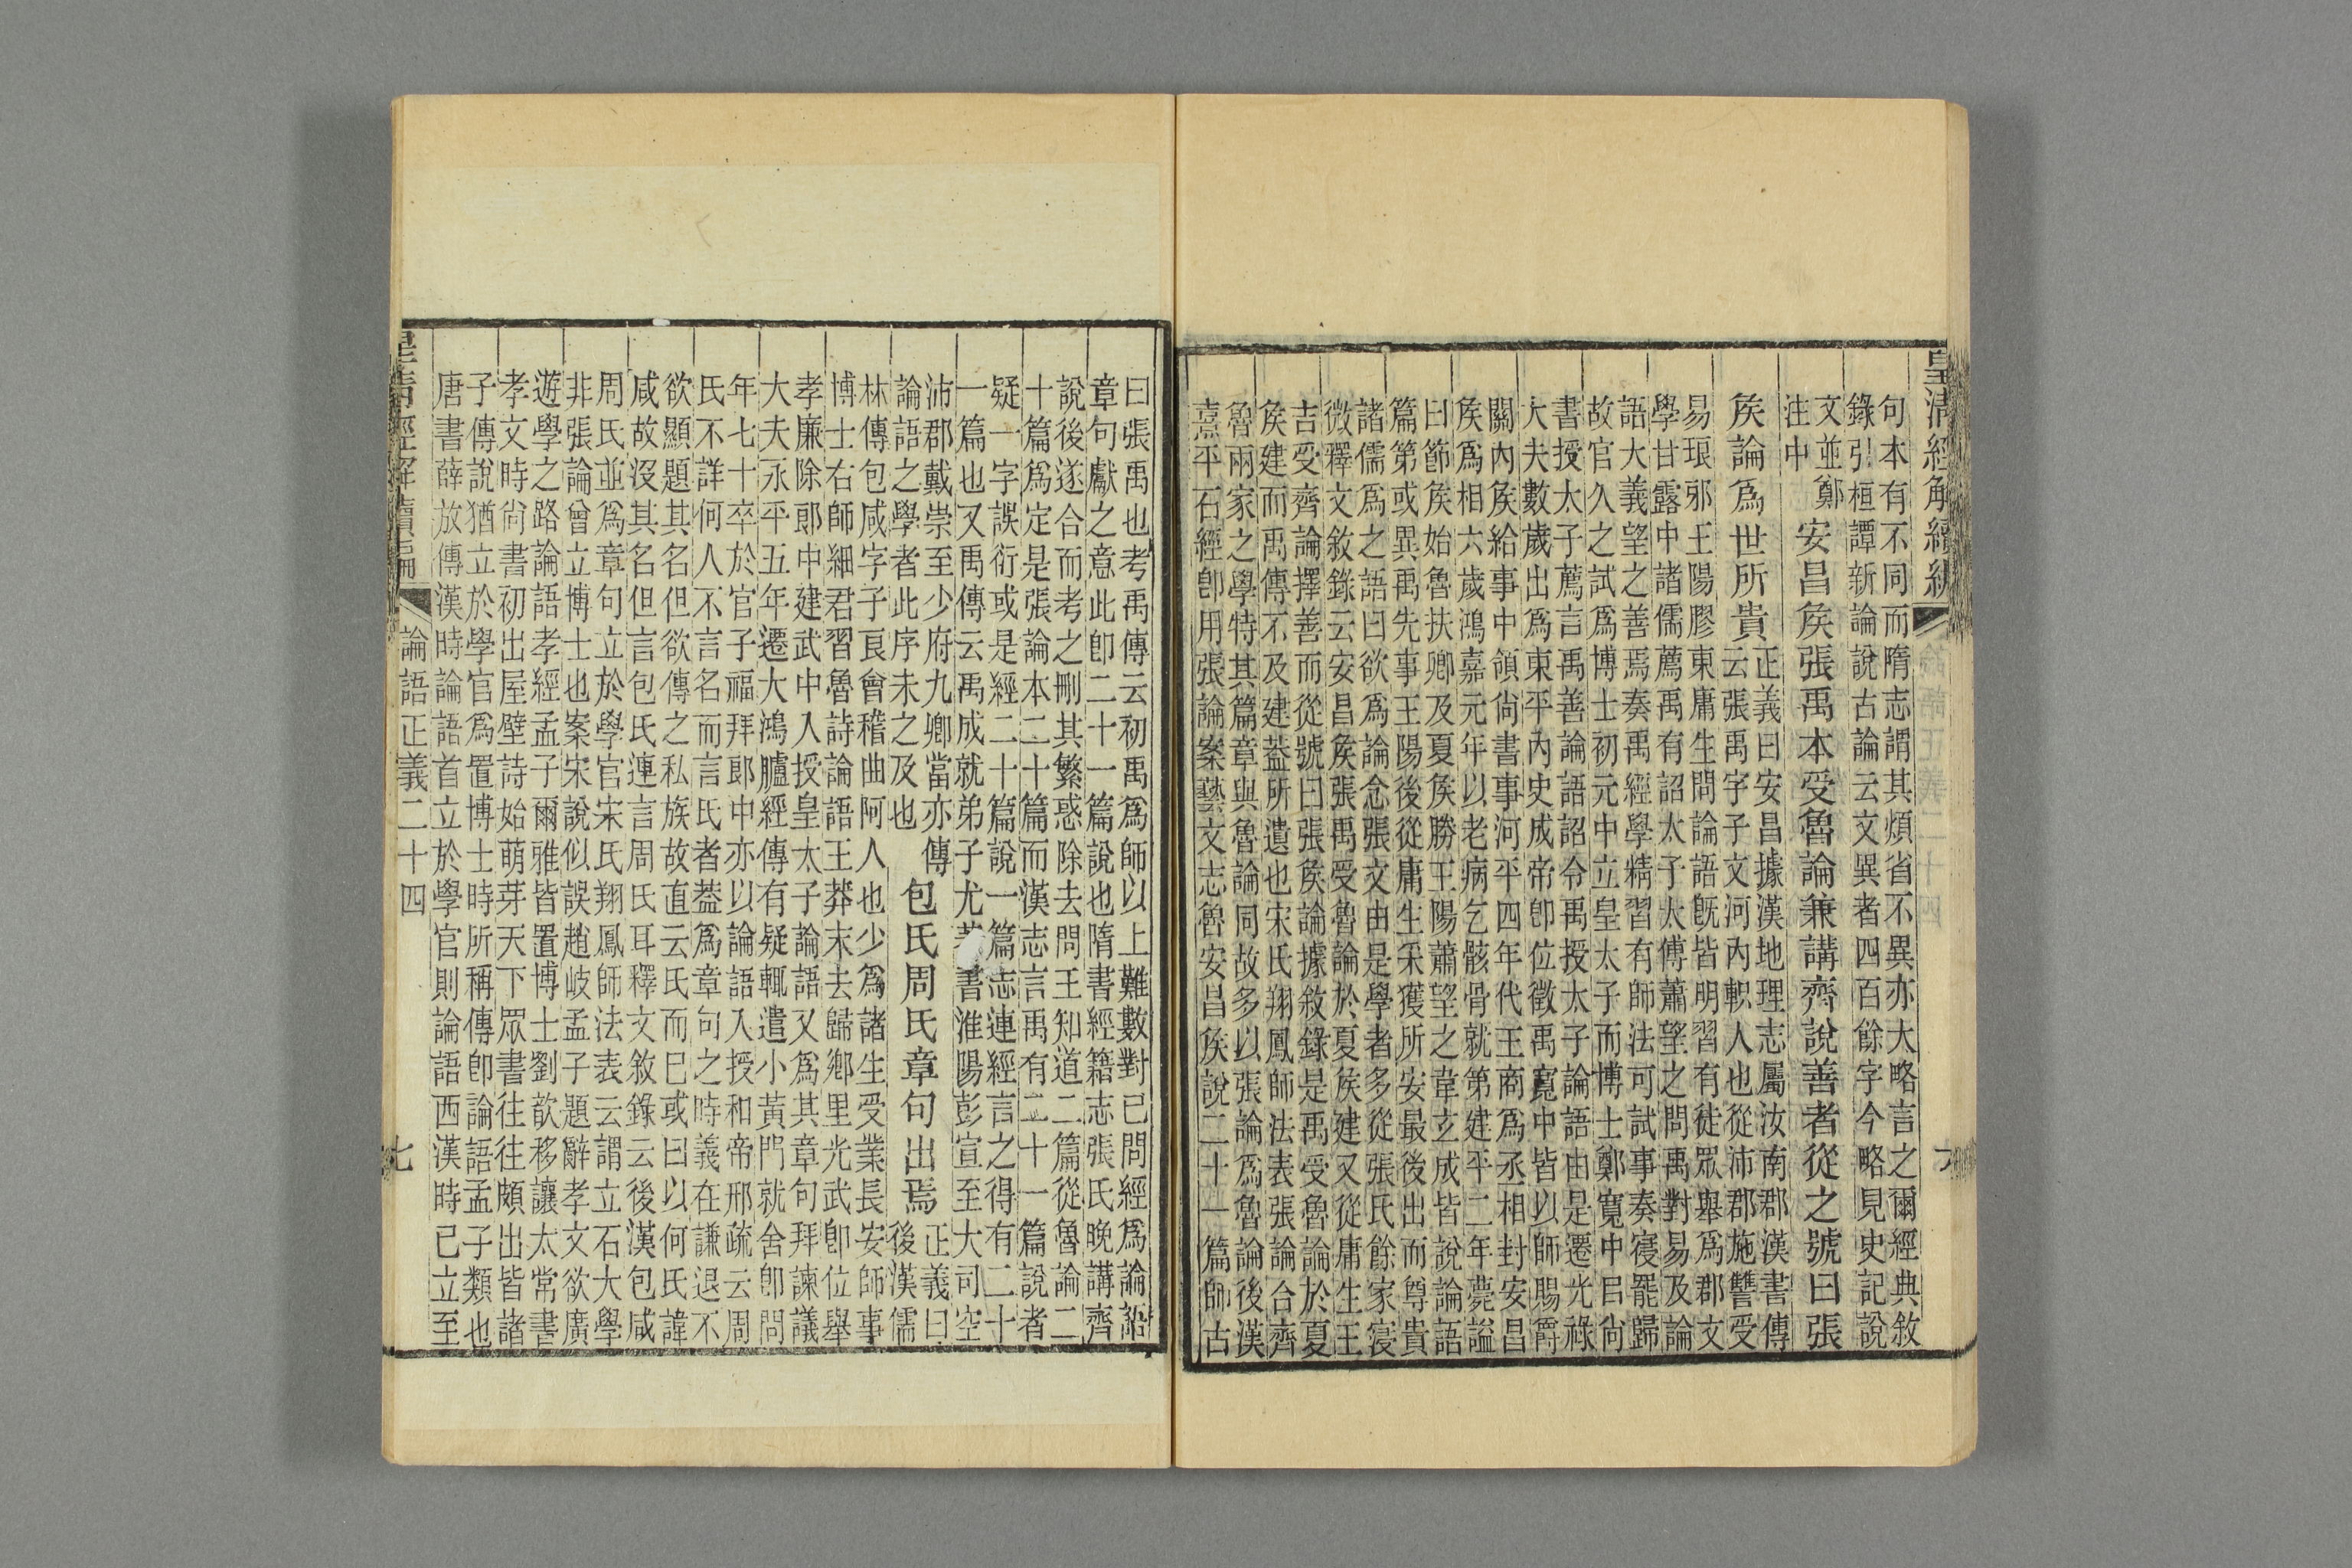 皇清經解續編
句本有不同而隋志謂其煩省不異亦大略言之爾經典敘
錄引桓譚新論說古論云文異者四百餘字今略見史記說
文並鄭
注中
安昌矦張禹本受魯論兼講齊說善者從之號曰張
矦論爲世所貴
正義曰安昌據漢地理志屬汝南郡漢書傳
云張禹字子文河內軹人也從沛郡施讐受
易琅邪王陽膠東庸生問論語旣皆明習有徒眾舉爲郡文
學甘露中諸儒薦禹有詔太子太傅蕭望之問禹對易及論
語大義望之善焉奏禹經學精習有師法可試事奏寑罷歸
故官久之試爲博士初元中立皇太子而博士鄭寬中㠯尙
書授太子薦言禹善論語詔令禹授太子論語由是遷光祿
大夫數歲出爲東平內史成帝卽位徵禹寬中皆以師賜爵
關內矦給事中領尙書事河平四年代王商爲丞相封安昌
矦爲相六歲鴻嘉元年以老病乞骸骨就第建平二年薨謚
曰節矦始魯扶卿及夏矦勝王陽蕭望之韋玄成皆說論語
篇第或異禹先事王陽後從庸生采獲所安最後出而尊貴
諸儒爲之語曰欲爲論念張文由是學者多從張氏餘家寑
微釋文敘錄云安昌矦張禹受魯論於夏矦建又從庸生王
吉受齊論擇善而從號曰張矦論據敘錄是禹受魯論於夏
矦建而禹傳不及建葢所遺也宋氏翔鳳師法表張論合齊
魯兩家之學特其篇章與魯論同故多以張論爲魯論後漢
熹平石經卽用張論案藝文志魯安昌矦說二十一篇師古
曰張禹也考禹傳云初禹爲師以上難數對已問經爲論語
章句獻之意此卽二十一篇說也隋書經籍志張氏晚講齊
說後遂合而考之刪其繁惑除去問王知道二篇從魯論二
十篇爲定是張論本二十篇而漢志言禹有二十一篇說者
疑一字誤衍或是經二十篇說一篇志連經言之得有二十
一篇也又禹傳云禹成就弟子尤著書淮陽彭宣至大司空
沛郡戴崇至少府九卿當亦傳
論語之學者此序未之及也
包氏周氏章句出焉
正義曰
後漢儒
林傳包咸字子良會稽曲阿人也少爲諸生受業長安師事
博士右師細君習魯詩論語王莽末去歸鄉里光武卽位舉
孝廉除郎中建武中入授皇太子論語又爲其章句拜諫議
大夫永平五年遷大鴻臚經傳有疑輒遣小黃門就舍卽問
年七十卒於官子福拜郎中亦以論語入授和帝邢疏云周
氏不詳何人不言名而言氏者葢爲章句之時義在謙退不
欲顯題其名但欲傳之私族故直云氏而已或曰以何氏諱
咸故沒其名但言包氏連言周氏耳釋文敘錄云後漢包咸
周氏並爲章句立於學官宋氏翔鳳師法表云謂立石大學
非張論曾立博士也案宋說似誤趙岐孟子題辭孝文欲廣
遊學之路論語孝經孟子爾雅皆置博士劉歆移讓太常書
孝文時尙書初出屋壁詩始萌芽天下眾書往往頗出皆諸
子傳說猶立於學官爲置博士時所稱傳卽論語孟子類也
唐書薛放傳漢時論語首立於學官則論語西漢時已立至
皇清經解續編
論語正義二十四
七